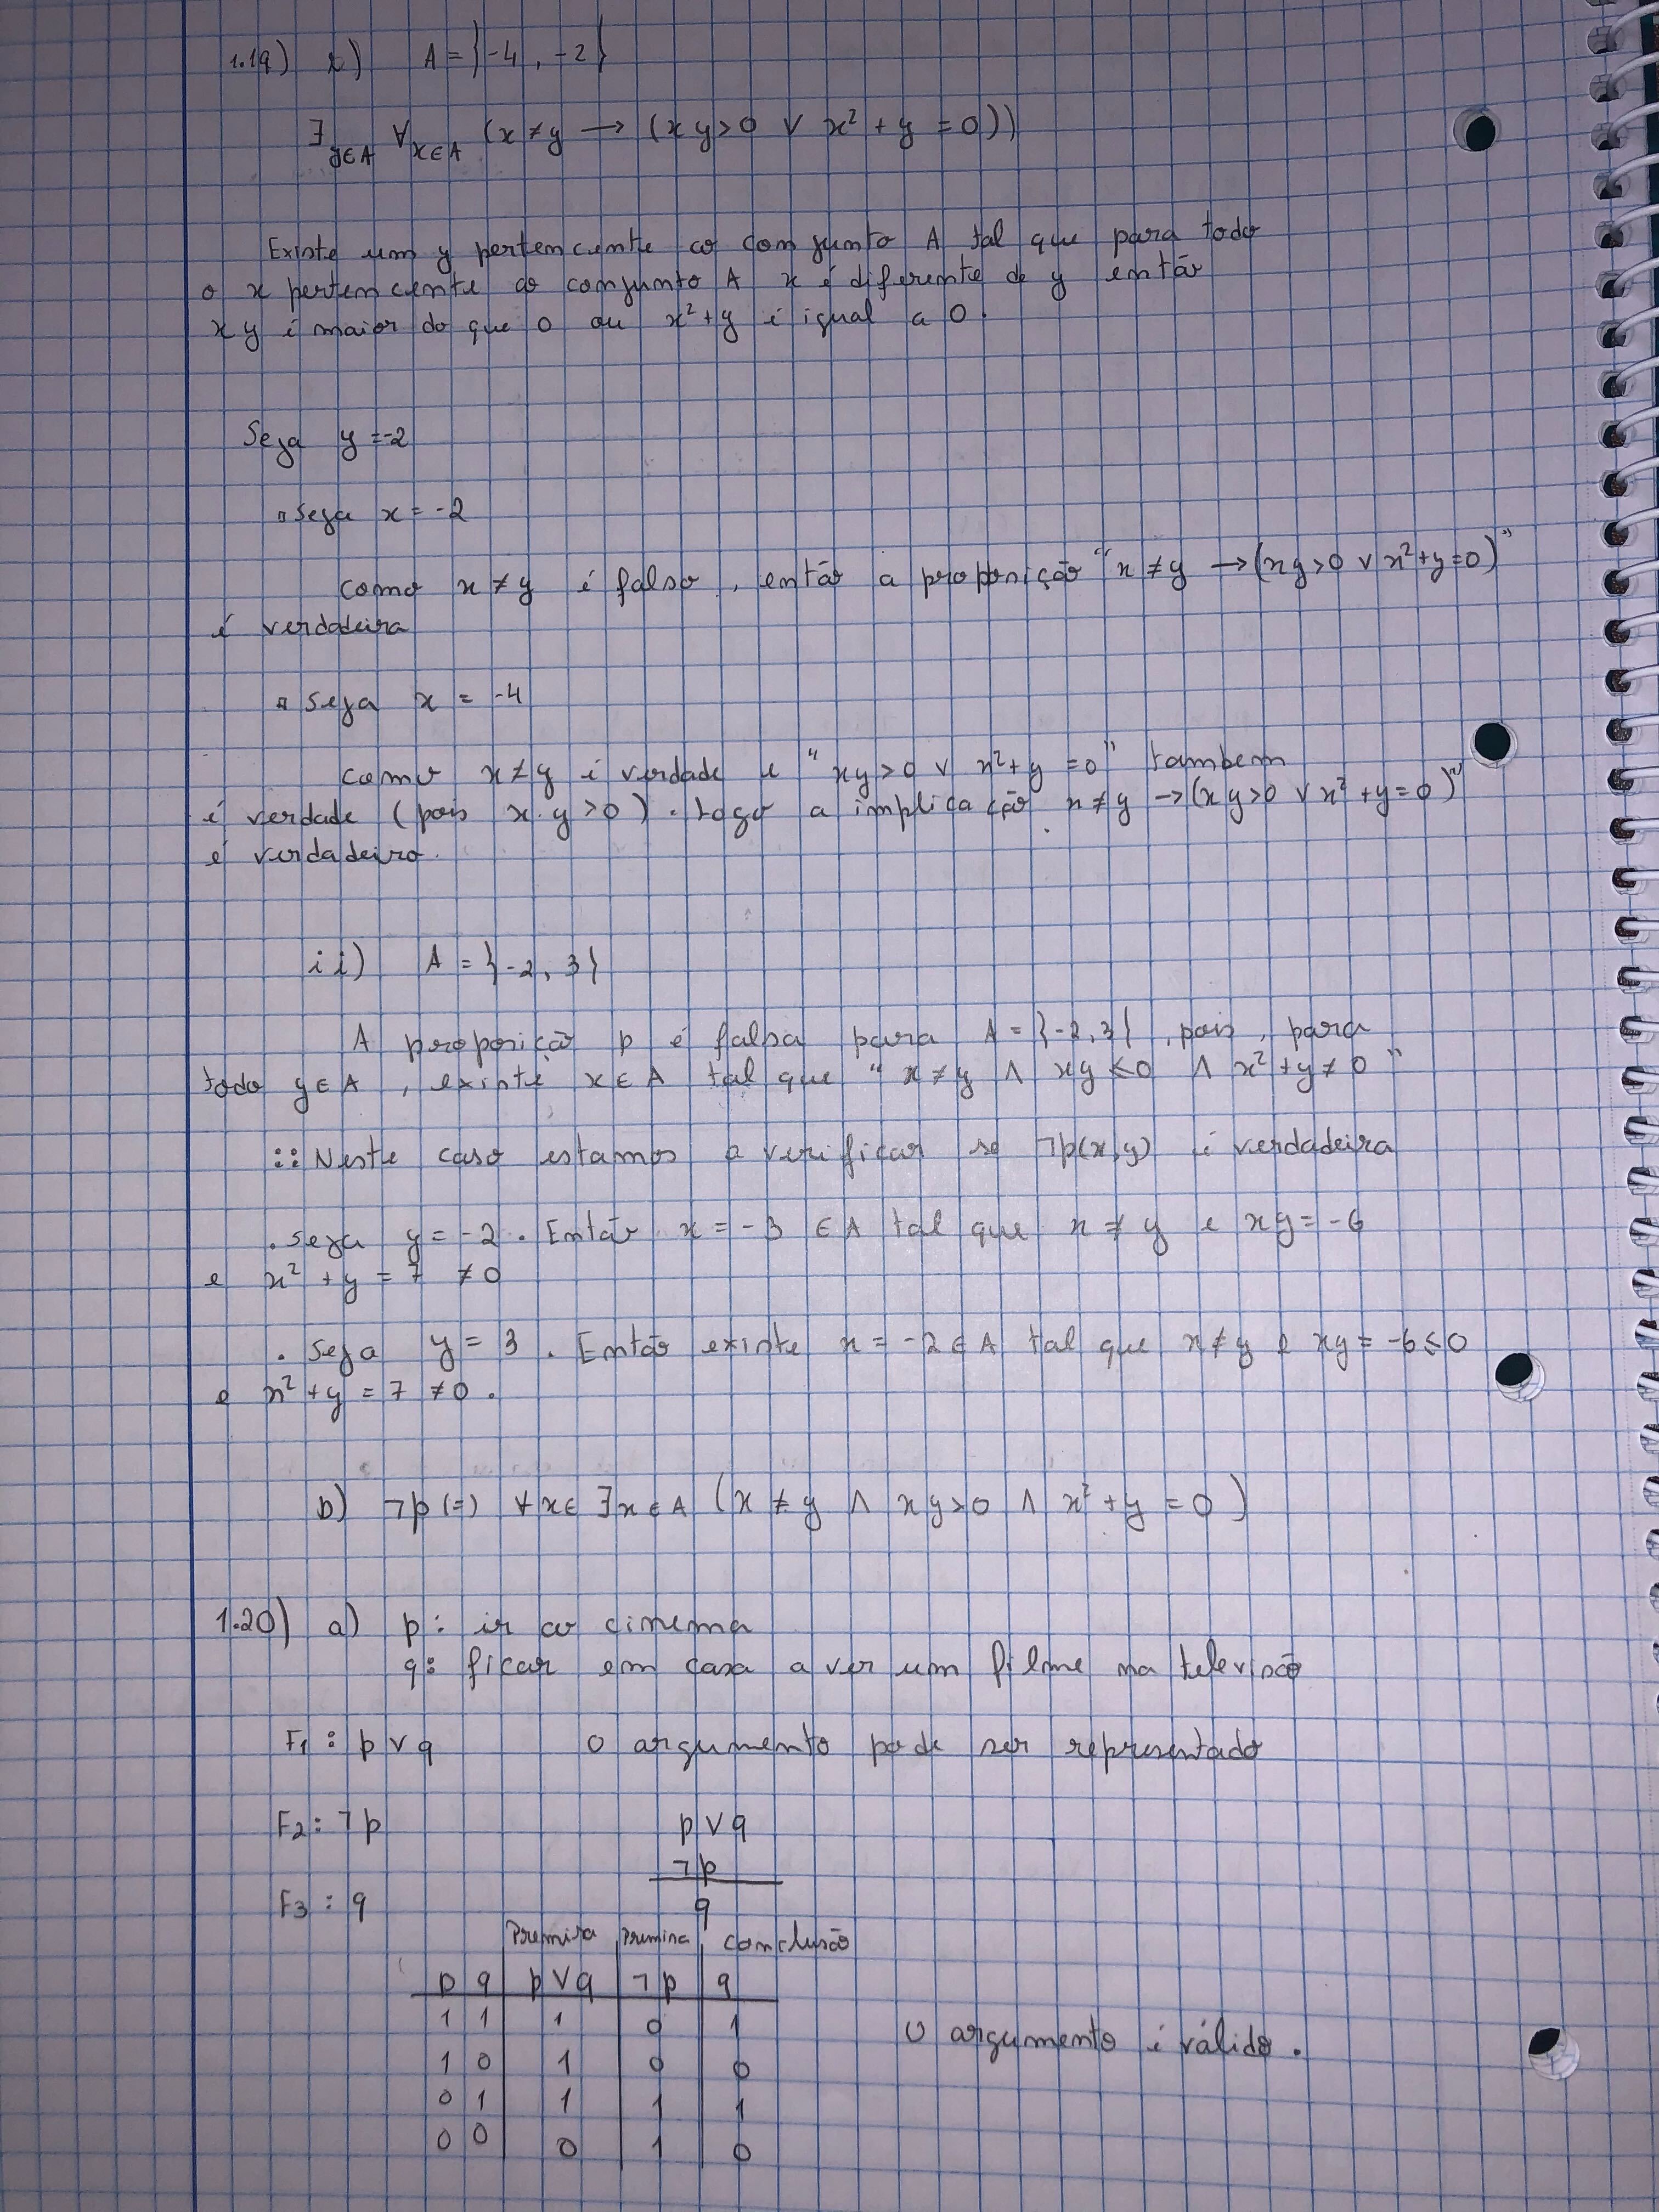 1.19) a) A = {-4, -2}
∃y∈A ∀x∈A (x ≠ y → (xy > 0 ∨ x² + y = 0))
Existe um y pertencente ao conjunto A tal que para todo
o x pertencente ao conjunto A x é diferente de y então
xy é maior do que 0 ou x²+y é igual a 0.
Seja y = -2
▫ seja x = -2
como x ≠ y é falso, então a proposição "x ≠ y → (xy > 0 ∨ x²+y=0)"
é verdadeira
▫ seja x = -4
como x ≠ y é verdade e "xy > 0 ∨ x²+y = 0" tambem
é verdade (pois x.y > 0). Logo a implicação x ≠ y → (xy > 0 ∨ x² + y = 0)"
é verdadeiro.
ii) A = {-2, 3}
A proposição p é falsa para A = {-2, 3}, pois, para
todo y ∈ A, existe x ∈ A tal que "x ≠ y ∧ xy ≤ 0 ∧ x² + y ≠ 0"
:: Neste caso estamos a verificar se ¬p(x,y) é verdadeira
. seja y = -2. Então x = -3 ∈ A tal que x ≠ y e xy = -6
e x² + y = 7 ≠ 0
. Seja y = 3. Então existe x = -2 ∈ A tal que x ≠ y e xy = -6 ≤ 0
e x² + y = 7 ≠ 0.
b) ¬p (=) ∀x∈ ∃x∈A (x ≠ y ∧ xy > 0 ∧ x² + y = 0)
1.20) a) p: ir ao cinema
q: ficar em casa a ver um filme na televisão
F1: p ∨ q O argumento pode ser representado
F2: ¬p p ∨ q
¬p
F3: q q
Premissa Premissa conclusão
p q p ∨ q ¬p q
1 1 1 0 1
O argumento é válido.
1 0 1 0 0
0 1 1 1 1
0 0 0 1 0